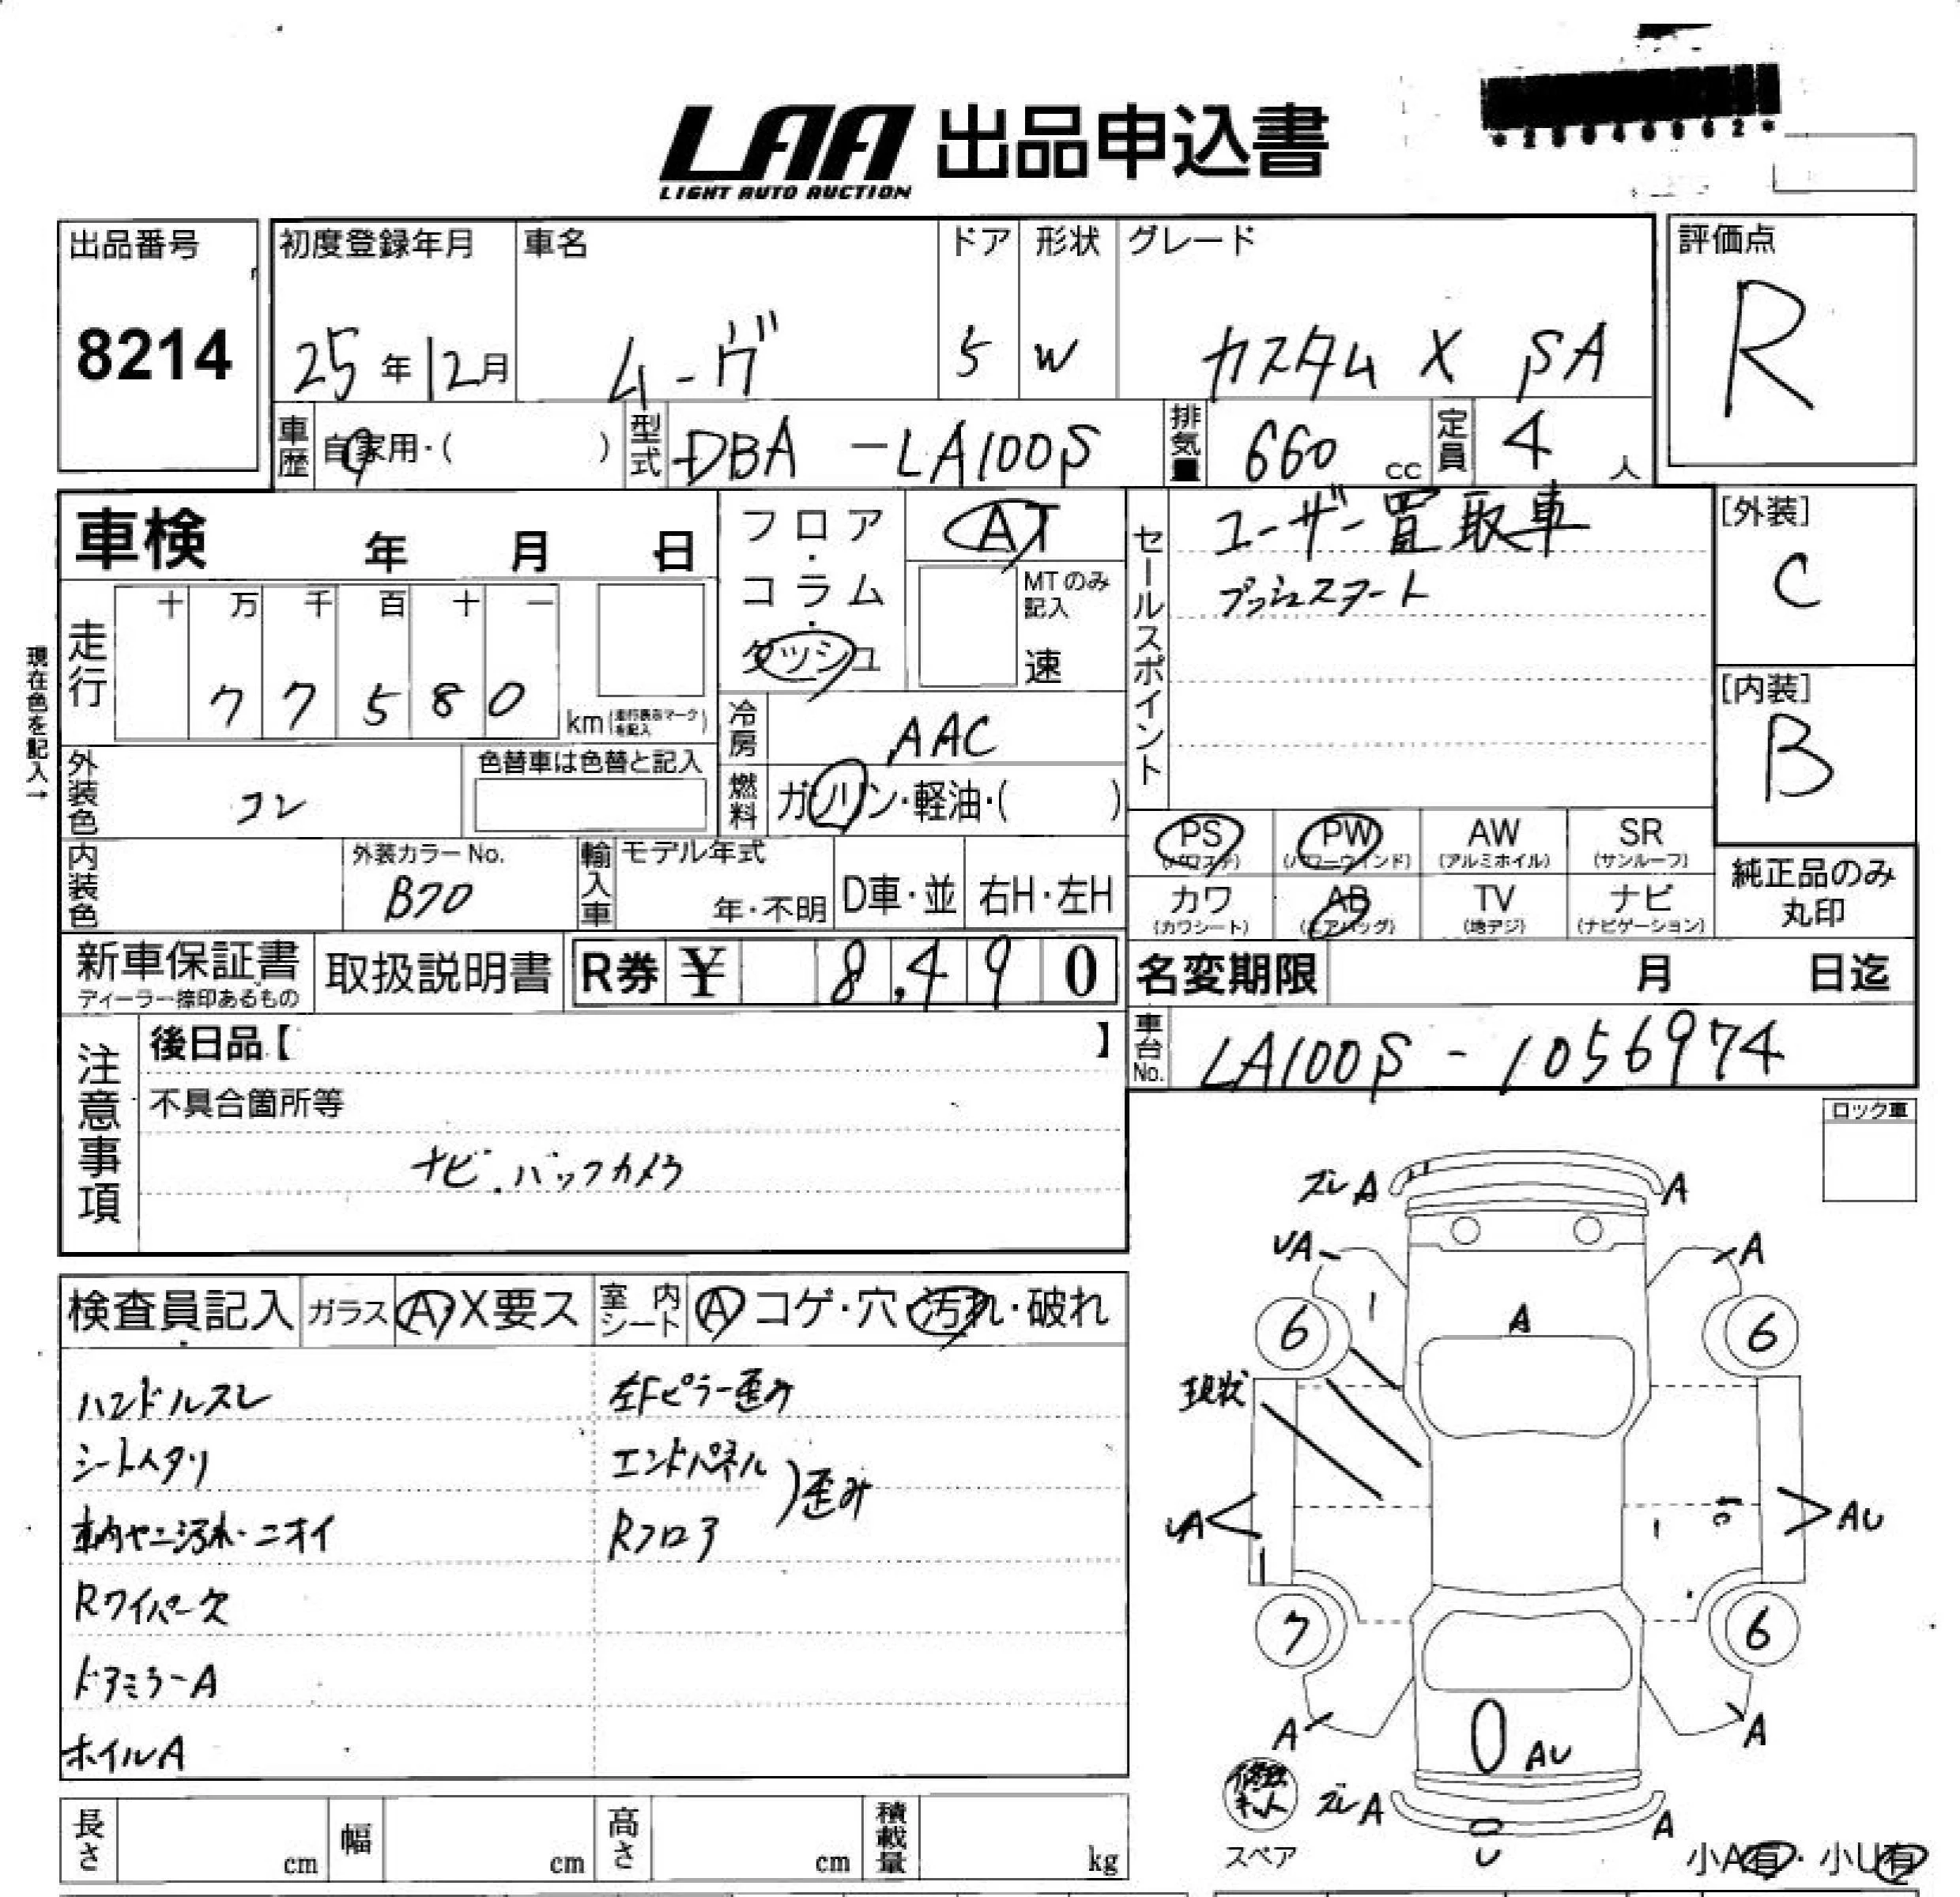 LAA 出品申込書
LIGHT AUTO AUCTION
出品番号
8214
初度登録年月
25年12月
車名
ムーヴ
ドア
5
形状
W
グレード
カスタム X SA
評価点
R
車歴
自家用・( )
型式
DBA -LA100S
排気量
660 cc
定員
4 人
車検 年 月 日
フロア・コラム・ダッシュ
AT
MTのみ記入
速
セールスポイント
ユーザー買取車
プッシュスタート
[外装]
C
[内装]
B
現在色を記入→
走行
十 万 千 百 十 一
7 7 5 8 0
km (走行表示マークを記入)
冷房
AAC
燃料
ガソリン・軽油・( )
外装色
コン
色替車は色替と記入
内装色
外装カラーNo.
B70
輸入車
モデル年式
年・不明
D車・並
右H・左H
PS
(パワステ)
PW
(パワーウインド)
AW
(アルミホイル)
SR
(サンルーフ)
カワ
(カワシート)
AB
(エアバッグ)
TV
(地デジ)
ナビ
(ナビゲーション)
純正品のみ
丸印
新車保証書
ディーラー捺印あるもの
取扱説明書
R券 ¥ 8,490
名変期限 月 日迄
車台No.
LA100S - 1056974
注意事項
後日品【 】
不具合箇所等
ナビ.バックカメラ
ロック車
検査員記入
ガラス
A X要ス
室内シート
A コゲ・穴・汚れ・破れ
ハンドルスレ
シートヘタリ
車内ヤニ汚れ・ニオイ
Rワイパー欠
ドアミラーA
ホイルA
左Fピラー歪み
エンドパネル
Rフロア
)歪み
ズレ A
A
UA
A
6
A
6
現状
UA
AU
7
6
A
AU
A
修理キット
スペア
ズレ A
A
U
小A有・小U有
長さ
cm
幅
cm
高さ
cm
積載量
kg